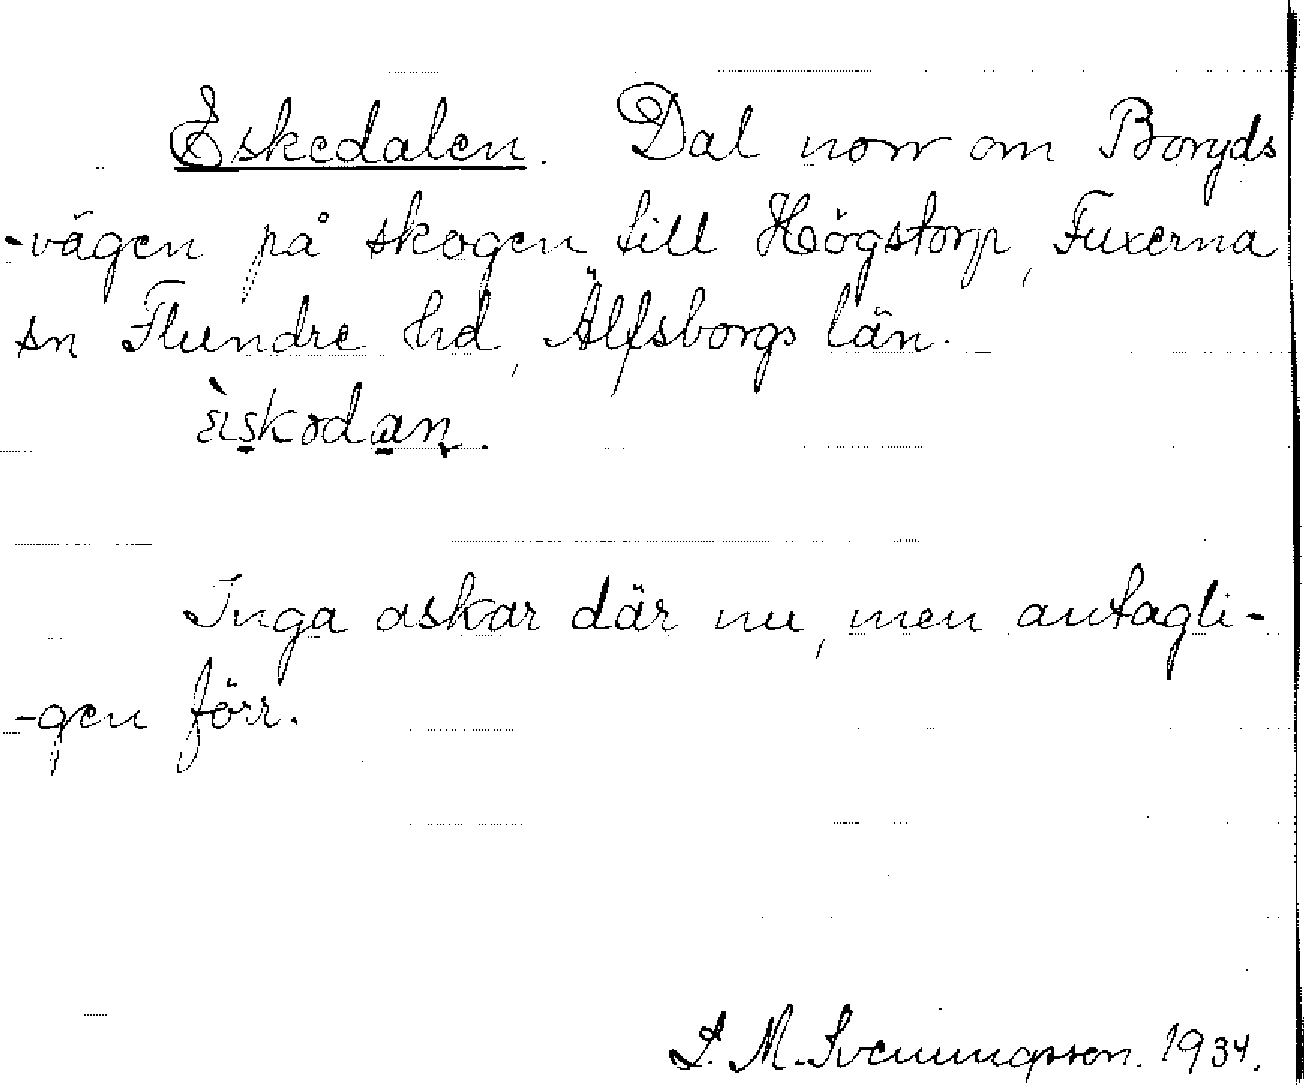 Eskedalen. Dal norr om Boryds
-vägen på skogen till Högstorp, Fuxerna
sn Flundre hd, Älfsborgs län.
Inga askar där nu, men antagli-
-gen förr.
S. M. Svenungsson. 1934.